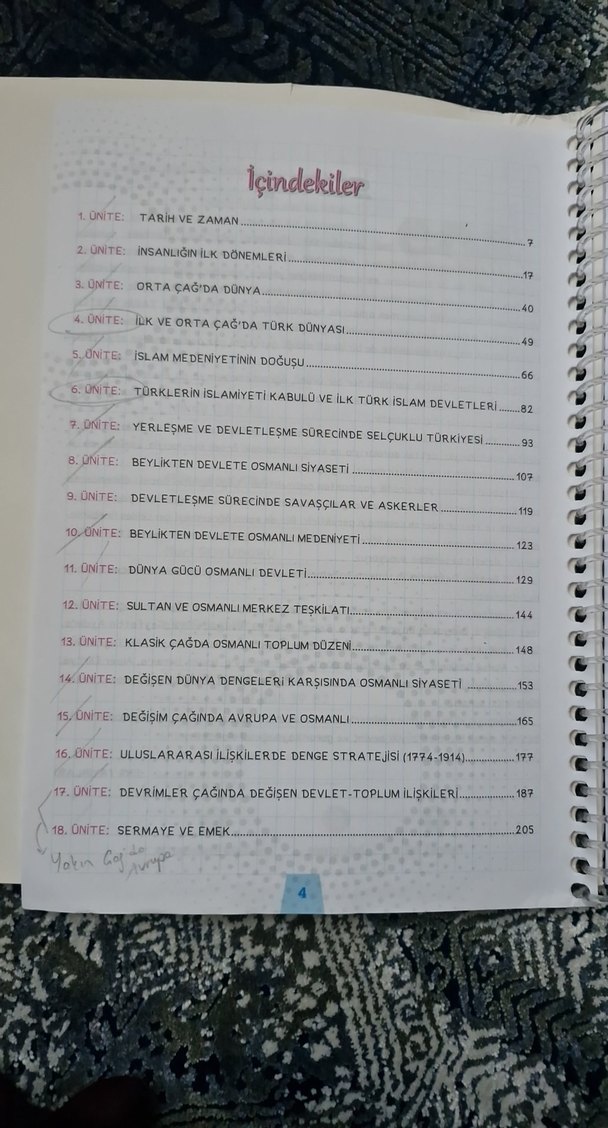 İçindekiler
1. ÜNİTE: TARİH VE ZAMAN 7
2. ÜNİTE: İNSANLIĞIN İLK DÖNEMLERİ 17
3. ÜNİTE: ORTA ÇAĞ'DA DÜNYA 40
4. ÜNİTE: İLK VE ORTA ÇAĞ'DA TÜRK DÜNYASI 49
5. ÜNİTE: İSLAM MEDENİYETİNİN DOĞUŞU 66
6. ÜNİTE: TÜRKLERİN İSLAMİYETİ KABULÜ VE İLK TÜRK İSLAM DEVLETLERİ 82
7. ÜNİTE: YERLEŞME VE DEVLETLEŞME SÜRECİNDE SELÇUKLU TÜRKİYESİ 93
8. ÜNİTE: BEYLİKTEN DEVLETE OSMANLI SİYASETİ 107
9. ÜNİTE: DEVLETLEŞME SÜRECİNDE SAVAŞÇILAR VE ASKERLER 119
10. ÜNİTE: BEYLİKTEN DEVLETE OSMANLI MEDENİYETİ 123
11. ÜNİTE: DÜNYA GÜCÜ OSMANLI DEVLETİ 129
12. ÜNİTE: SULTAN VE OSMANLI MERKEZ TEŞKİLATI 144
13. ÜNİTE: KLASİK ÇAĞDA OSMANLI TOPLUM DÜZENİ 148
14. ÜNİTE: DEĞİŞEN DÜNYA DENGELERİ KARŞISINDA OSMANLI SİYASETİ 153
15. ÜNİTE: DEĞİŞİM ÇAĞINDA AVRUPA VE OSMANLI 165
16. ÜNİTE: ULUSLARARASI İLİŞKİLERDE DENGE STRATEJİSİ (1774-1914) 177
17. ÜNİTE: DEVRİMLER ÇAĞINDA DEĞİŞEN DEVLET-TOPLUM İLİŞKİLERİ 187
18. ÜNİTE: SERMAYE VE EMEK 205
Yakın Çağ'da
Avrupa
4